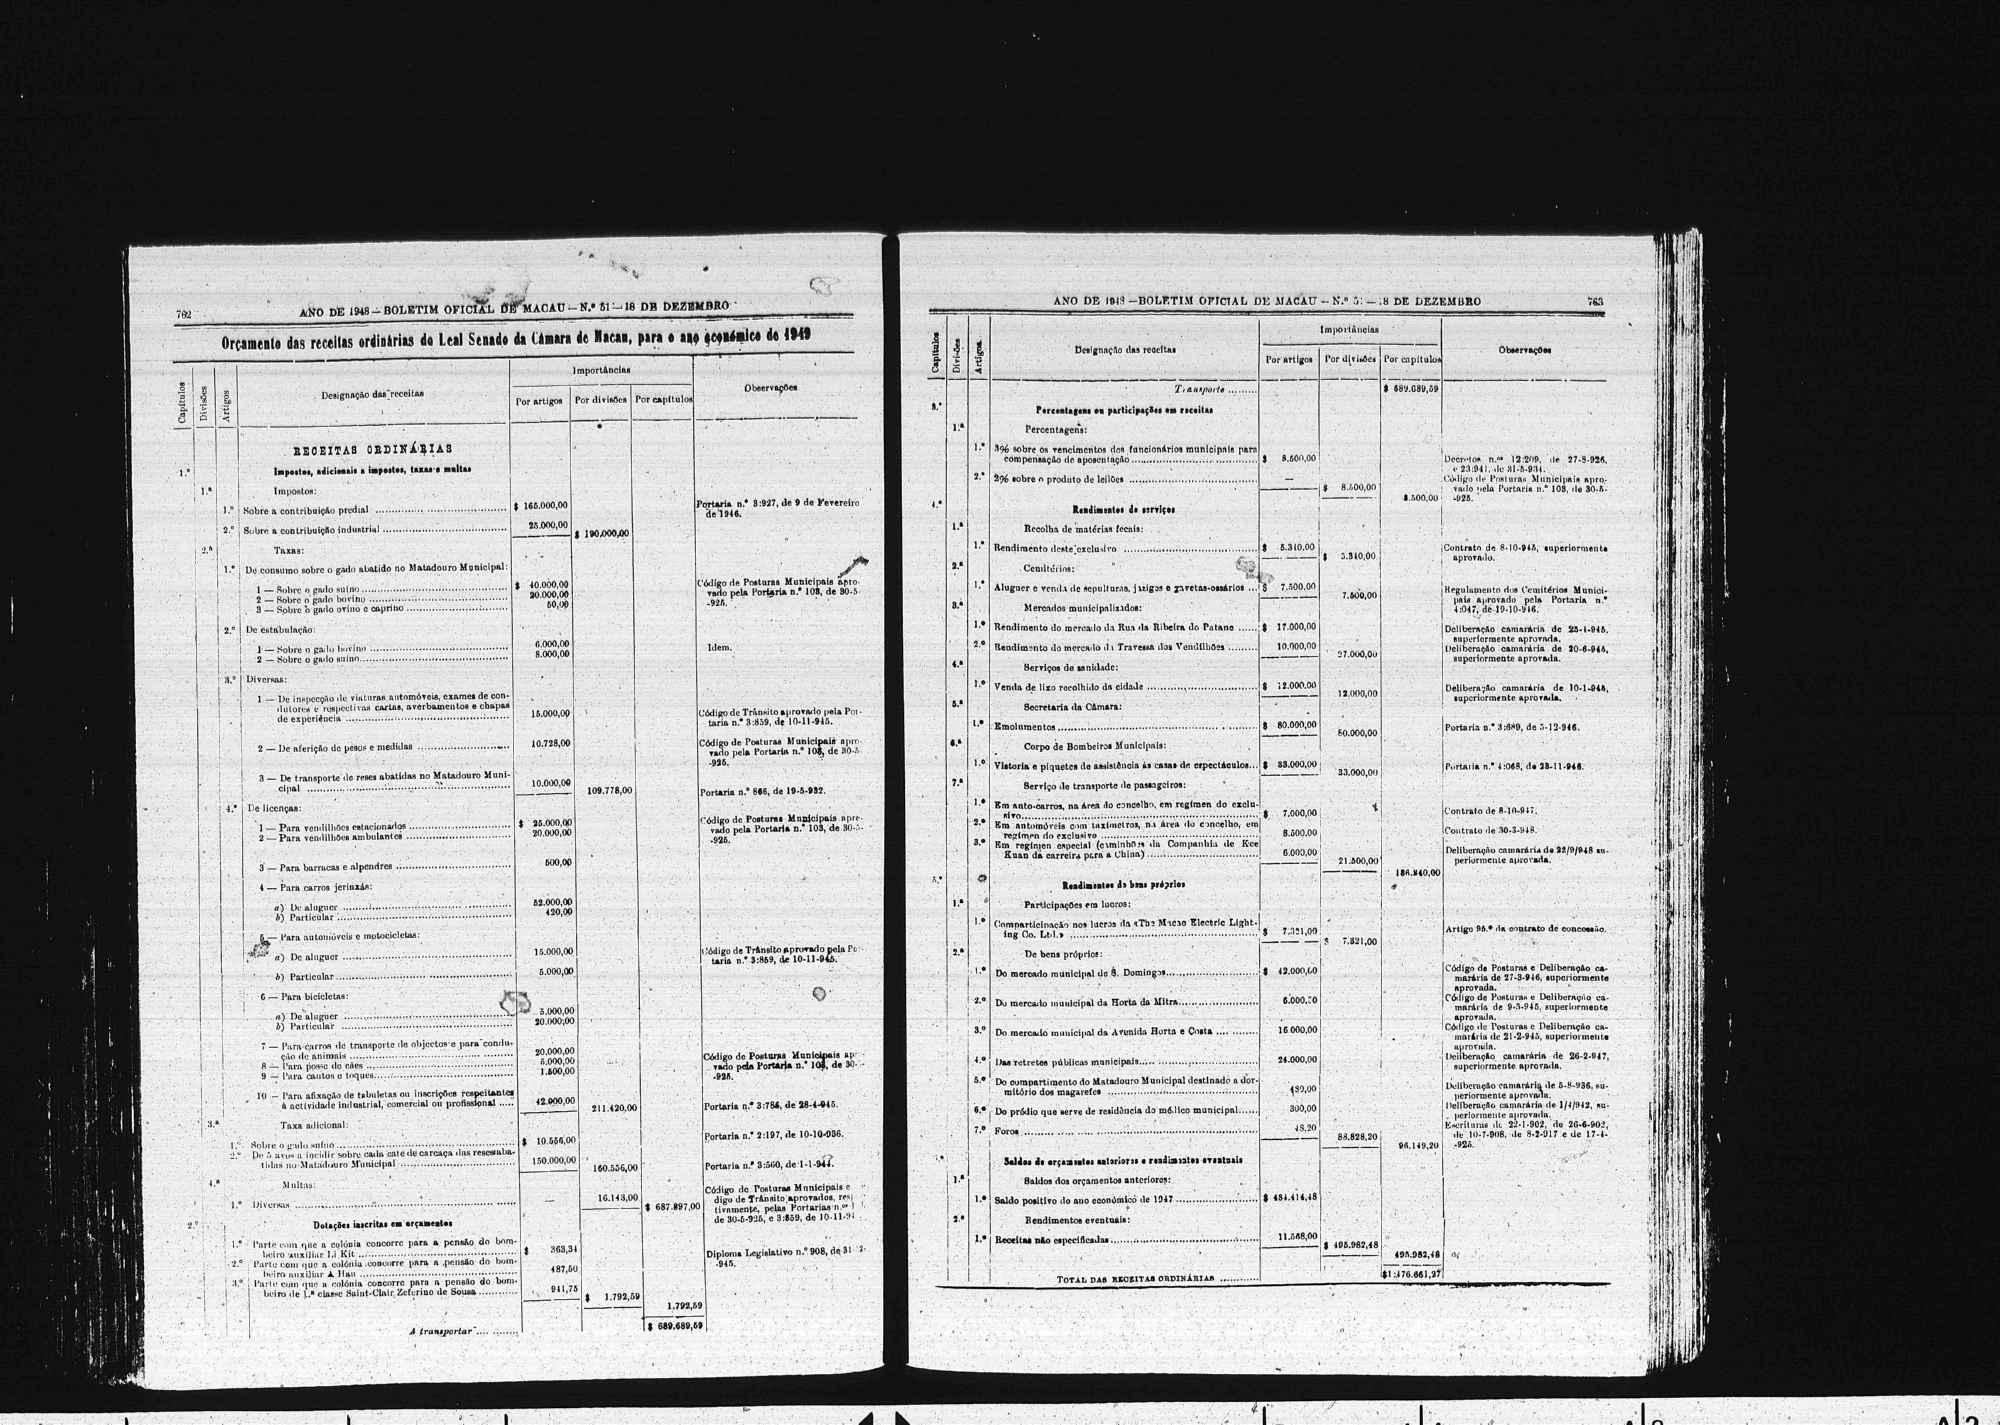 762
ANO DE 1948 — BOLETIM OFICIAL DE MACAU — N.º 51 — 18 DE DEZEMBRO
Orçamento das receitas ordinárias do Leal Senado da Câmara de Macau, para o ano económico de 1949
Capítulos Divisões Artigos Designação das receitas Importâncias Observações
Por artigos Por divisões Por capítulos
RECEITAS ORDINÁRIAS
1.º Impostos, adicionais a impostos, taxas e multas
1.ª Impostos:
1.º Sobre a contribuição predial $ 165.000,00 Portaria n.º 3:927, de 9 de Fevereiro
de 1946.
2.º Sobre a contribuição industrial 25.000,00
$ 190.000,00
2.ª Taxas:
1.º De consumo sobre o gado abatido no Matadouro Municipal:
1 — Sobre o gado suíno $ 40.000,00 Código de Posturas Municipais apro-
2 — Sobre o gado bovino 20.000,00 vado pela Portaria n.º 103, de 30-5-
3 — Sobre o gado ovino e caprino 50,00 -925.
2.º De estabulação:
1 — Sobre o gado bovino 6.000,00 Idem.
2 — Sobre o gado suíno 8.000,00
3.º Diversas:
1 — De inspecção de viaturas automóveis, exames de con-
dutores e respectivas cartas, averbamentos e chapas
de experiência 15.000,00 Código de Trânsito aprovado pela Por-
taria n.º 3:859, de 10-11-945.
2 — De aferição de pesos e medidas 10.728,00 Código de Posturas Municipais apro-
vado pela Portaria n.º 103, de 30-5-
-925.
3 — De transporte de reses abatidas no Matadouro Muni-
cipal 10.000,00
109.778,00 Portaria n.º 866, de 19-5-932.
4.º De licenças:
1 — Para vendilhões estacionados $ 25.000,00 Código de Posturas Municipais apro-
2 — Para vendilhões ambulantes 20.000,00 vado pela Portaria n.º 103, de 30-5-
-925.
3 — Para barracas e alpendres 500,00
4 — Para carros jerinxás:
a) De aluguer 52.000,00
b) Particular 420,00
5 — Para automóveis e motocicletas:
a) De aluguer 15.000,00 Código de Trânsito aprovado pela Por-
taria n.º 3:859, de 10-11-945.
b) Particular 5.000,00
6 — Para bicicletas:
a) De aluguer 5.000,00
b) Particular 20.000,00
7 — Para carros de transporte de objectos e para condu-
ção de animais 20.000,00 Código de Posturas Municipais apro-
8 — Para posse de cães 5.000,00 vado pela Portaria n.º 103, de 30-5-
9 — Para cantos e toques 1.500,00 -925.
10 — Para afixação de tabuletas ou inscrições respeitantes
à actividade industrial, comercial ou profissional 42.000,00 211.420,00 Portaria n.º 3:785, de 28-4-945.
3.ª Taxa adicional:
1.º Sobre o gado suíno $ 10.556,00 Portaria n.º 2:197, de 10-10-936.
2.º De 5 avos a incidir sobre cada cate de carcaça das reses aba-
tidas no Matadouro Municipal 150.000,00 160.556,00 Portaria n.º 3:560, de 1-1-944.
4.ª Multas:
1.º Diversas — 16.143,00 $ 687.897,00 Código de Posturas Municipais e
digo de Trânsito aprovados, res
tivamente, pelas Portarias n.os 1
de 30-5-925, e 3:859, de 10-11-94
2.º Dotações inscritas em orçamentos
1.º Parte com que a colónia concorre para a pensão do bom-
beiro auxiliar Li Kit $ 363,34 Diploma Legislativo n.º 908, de 31-12-
-945.
2.º Parte com que a colónia concorre para a pensão do bom-
beiro auxiliar A Hau 487,50
3.º Parte com que a colónia concorre para a pensão do bom-
beiro de 1.ª classe Saint-Clair Zeferino de Sousa 941,75
$ 1.792,59 1.792,59
A transportar $ 689.689,59
ANO DE 1948 — BOLETIM OFICIAL DE MACAU — N.º 51 — 18 DE DEZEMBRO
763
Capítulos Divisões Artigos Designação das receitas Importâncias Observações
Por artigos Por divisões Por capítulos
Transporte $ 689.689,59
3.º Percentagens ou participações em receitas
1.ª Percentagens:
1.º 3% sobre os vencimentos dos funcionários municipais para
compensação de aposentação $ 8.500,00 Decretos n.os 12:209, de 27-8-926,
e 23:941, de 31-5-934.
2.º 2% sobre o produto de leilões — $ 8.500,00 8.500,00 Código de Posturas Municipais apro-
vado pela Portaria n.º 103, de 30-5-
-925.
4.º Rendimentos de serviços
1.ª Recolha de matérias fecais:
1.º Rendimento deste exclusivo $ 5.340,00 $ 5.340,00 Contrato de 8-10-945, superiormente
aprovado.
2.ª Cemitérios:
1.º Aluguer e venda de sepulturas, jazigos e gavetas-ossários $ 7.500,00 7.500,00 Regulamento dos Cemitérios Munici-
pais aprovado pela Portaria n.º
4:047, de 19-10-946.
3.ª Mercados municipalizados:
1.º Rendimento do mercado da Rua da Ribeira do Patane $ 17.000,00 Deliberação camarária de 25-4-945,
superiormente aprovada.
2.º Rendimento do mercado da Travessa dos Vendilhões 10.000,00 27.000,00 Deliberação camarária de 20-6-945,
superiormente aprovada.
4.ª Serviços de sanidade:
1.º Venda de lixo recolhido da cidade $ 12.000,00 12.000,00 Deliberação camarária de 10-1-948,
superiormente aprovada.
5.ª Secretaria da Câmara:
1.º Emolumentos $ 80.000,00 80.000,00 Portaria n.º 3:689, de 5-12-946.
6.ª Corpo de Bombeiros Municipais:
1.º Vistoria e piquetes de assistência às casas de espectáculos $ 33.000,00 33.000,00 Portaria n.º 4:068, de 23-11-946.
7.ª Serviço de transporte de passageiros:
1.º Em auto-carros, na área do concelho, em regímen do exclu-
sivo $ 7.000,00 Contrato de 8-10-947.
2.º Em automóveis com taxímetros, na área do concelho, em
regímen do exclusivo 8.500,00 Contrato de 30-3-948.
3.º Em regímen especial (caminhões da Companhia de Kee
Kuan da carreira para a China) 6.000,00 21.500,00 186.340,00 Deliberação camarária de 22/9/948 su-
periormente aprovada.
5.º Rendimentos de bens próprios
1.ª Participações em lucros:
1.º Comparticipação nos lucros da «The Macao Electric Light-
ing Co. Ltd.» $ 7.321,00 $ 7.321,00 Artigo 95.º do contrato de concessão.
2.ª De bens próprios:
1.º Do mercado municipal de S. Domingos $ 42.000,00 Código de Posturas e Deliberação ca-
marária de 27-3-946, superiormente
aprovada.
2.º Do mercado municipal da Horta da Mitra 6.000,00 Código de Posturas e Deliberação ca-
marária de 9-5-945, superiormente
aprovada.
3.º Do mercado municipal da Avenida Horta e Costa 16.000,00 Código de Posturas e Deliberação ca-
marária de 21-2-945, superiormente
aprovada.
4.º Das retretes públicas municipais 24.000,00 Deliberação camarária de 26-2-947,
superiormente aprovada.
5.º Do compartimento do Matadouro Municipal destinado a dor-
mitório dos magarefes 480,00 Deliberação camarária de 5-8-936, su-
periormente aprovada.
6.º Do prédio que serve de residência do médico municipal 300,00 Deliberação camarária de 1/4/942, su-
periormente aprovada.
7.º Foros 48,20 88.828,20 96.149,20 Escrituras de 22-1-902, de 26-6-902,
de 10-7-908, de 8-2-917 e de 17-4-
-925.
Saldos de orçamentos anteriores e rendimentos eventuais
1.ª Saldos dos orçamentos anteriores:
1.º Saldo positivo do ano económico de 1947 $ 484.414,48
2.ª Rendimentos eventuais:
1.º Receitas não especificadas 11.568,00 $ 495.982,48 495.982,48
TOTAL DAS RECEITAS ORDINÁRIAS $1:476.661,27